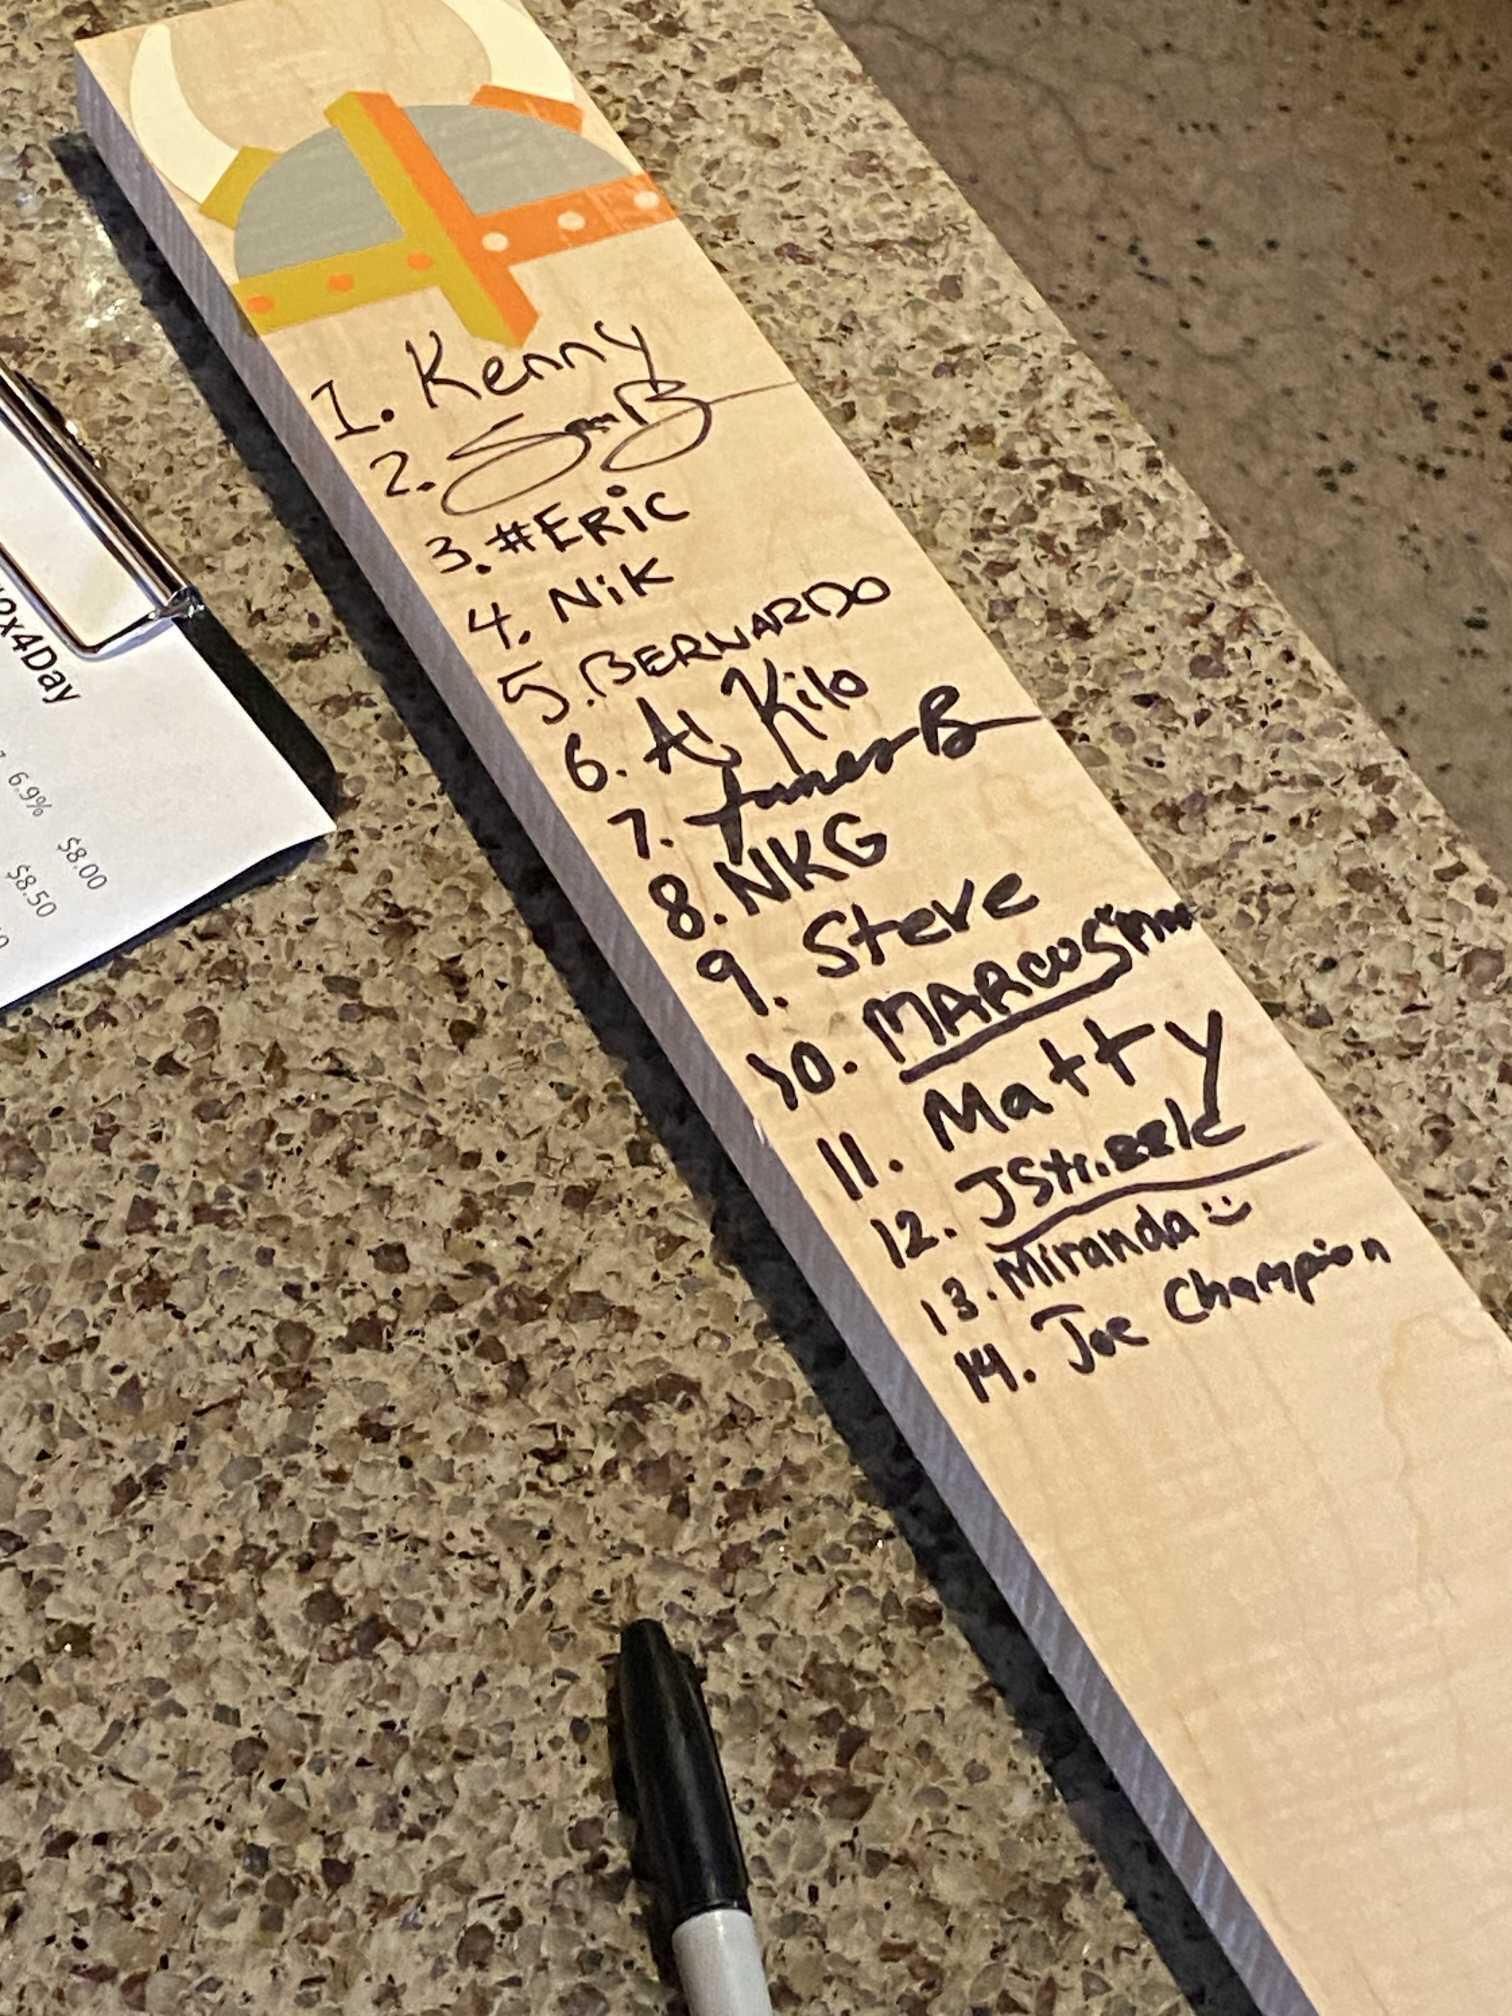 1. Kenny
2. Sam B
3. #ERiC
4. NiK
5. BERNARDO
6. Al Kilo
7. B
8. NKG
9. Steve
10. MARCOS
11. Matty
12. JStrizzle
13. Miranda :)
14. Joe Champion
2x4Day
6.9% $8.00
$8.50